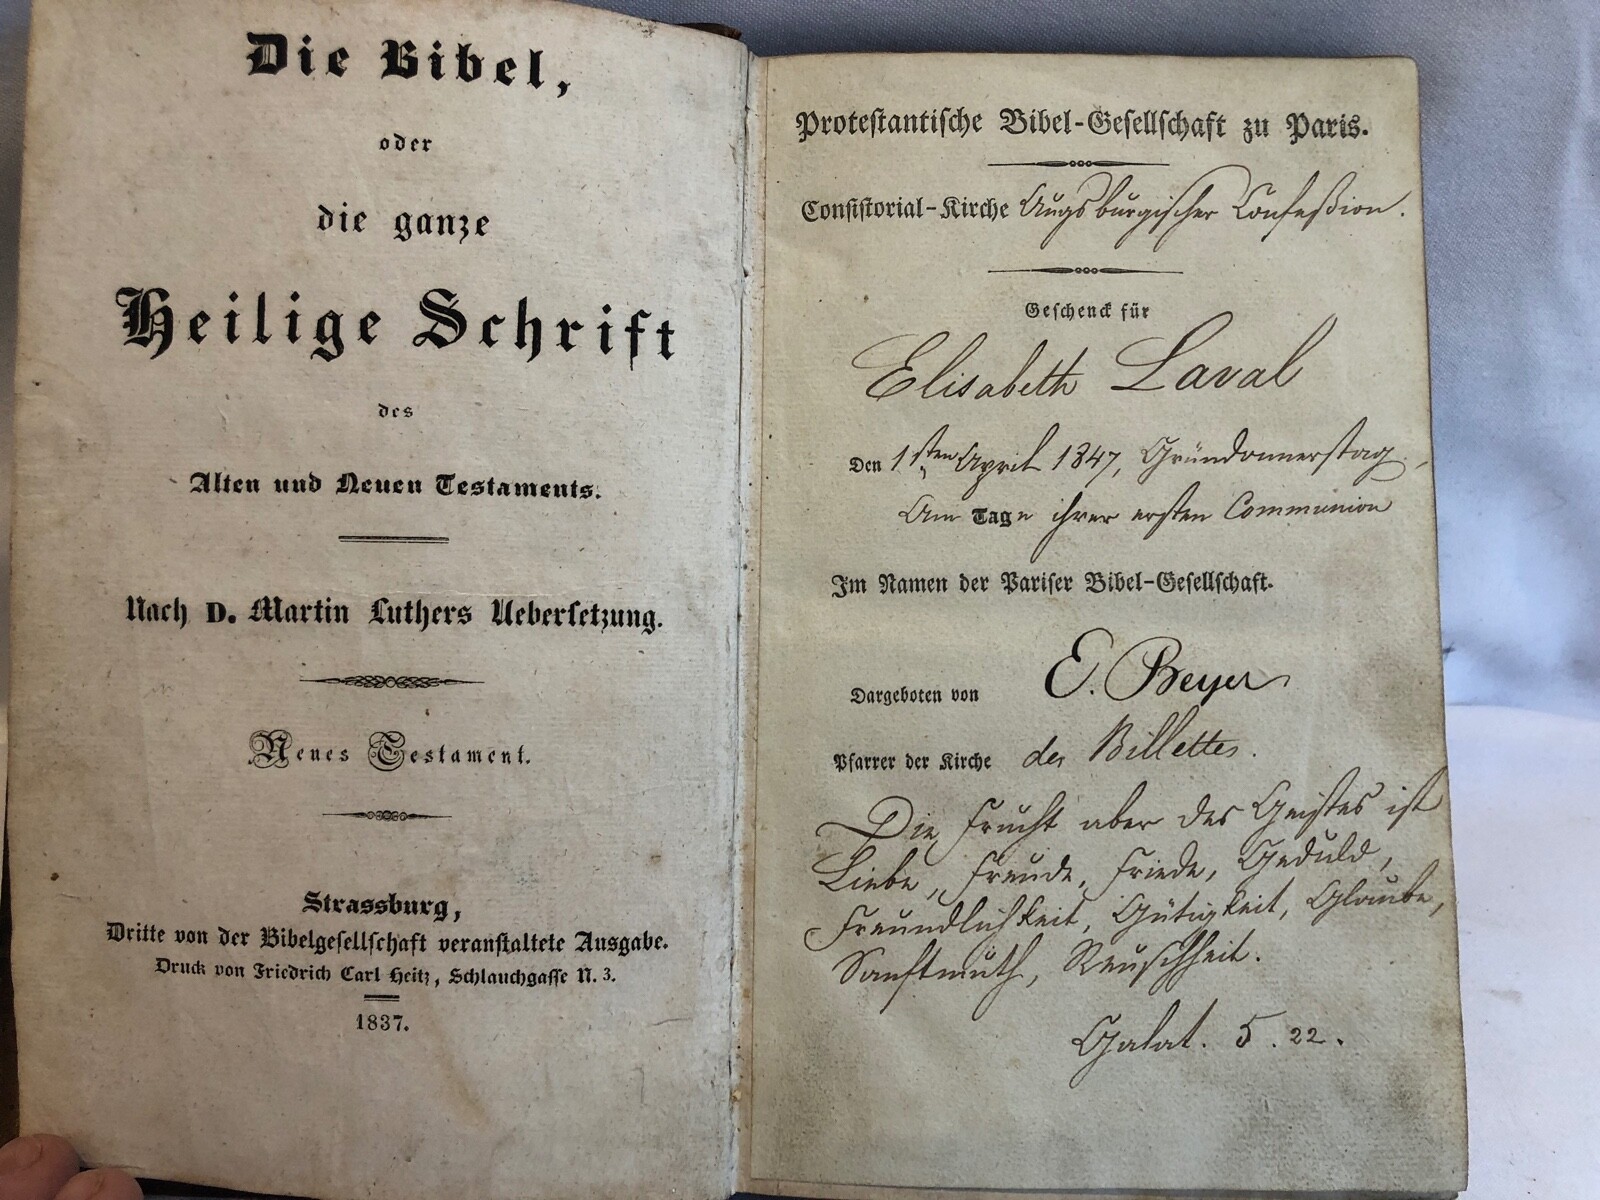 Die Bibel,
oder
die ganze
Heilige Schrift
des
Alten und Neuen Testaments.
Nach D. Martin Luthers Uebersetzung.
Neues Testament.
Strassburg,
Dritte von der Bibelgesellschaft veranstaltete Ausgabe.
Druck von Friedrich Carl Heitz, Schlauchgasse N. 3.
1837.
Protestantische Bibel-Gesellschaft zu Paris.
Consistorial-Kirche Augsburgischer Confeßion.
Geschenck für
Elisabeth Laval
Den 1sten April 1847, Gründonnerstag,
Am Tage ihrer ersten Communion
Im Namen der Pariser Bibel-Gesellschaft.
Dargeboten von E. Beyer
Pfarrer der Kirche des Billettes.
Die Frucht aber des Geistes ist
Liebe, Freude, Friede, Geduld,
Freundlichkeit, Gütigkeit, Glaube,
Sanftmuth, Keuschheit.
Galat. 5. 22.